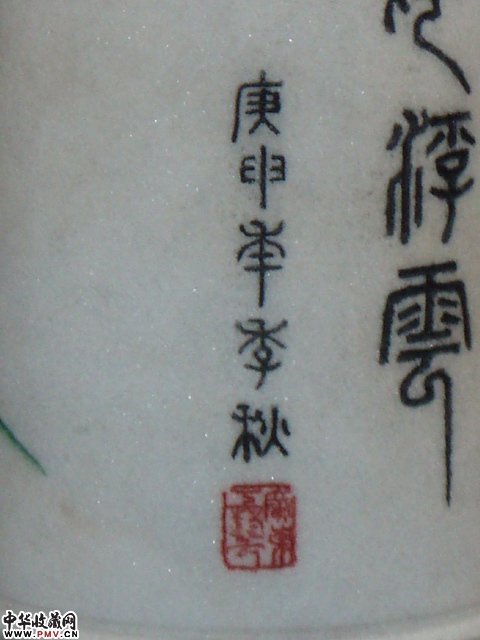 浮雲
庚申年季秋
中华收藏网
www.PMV.CN